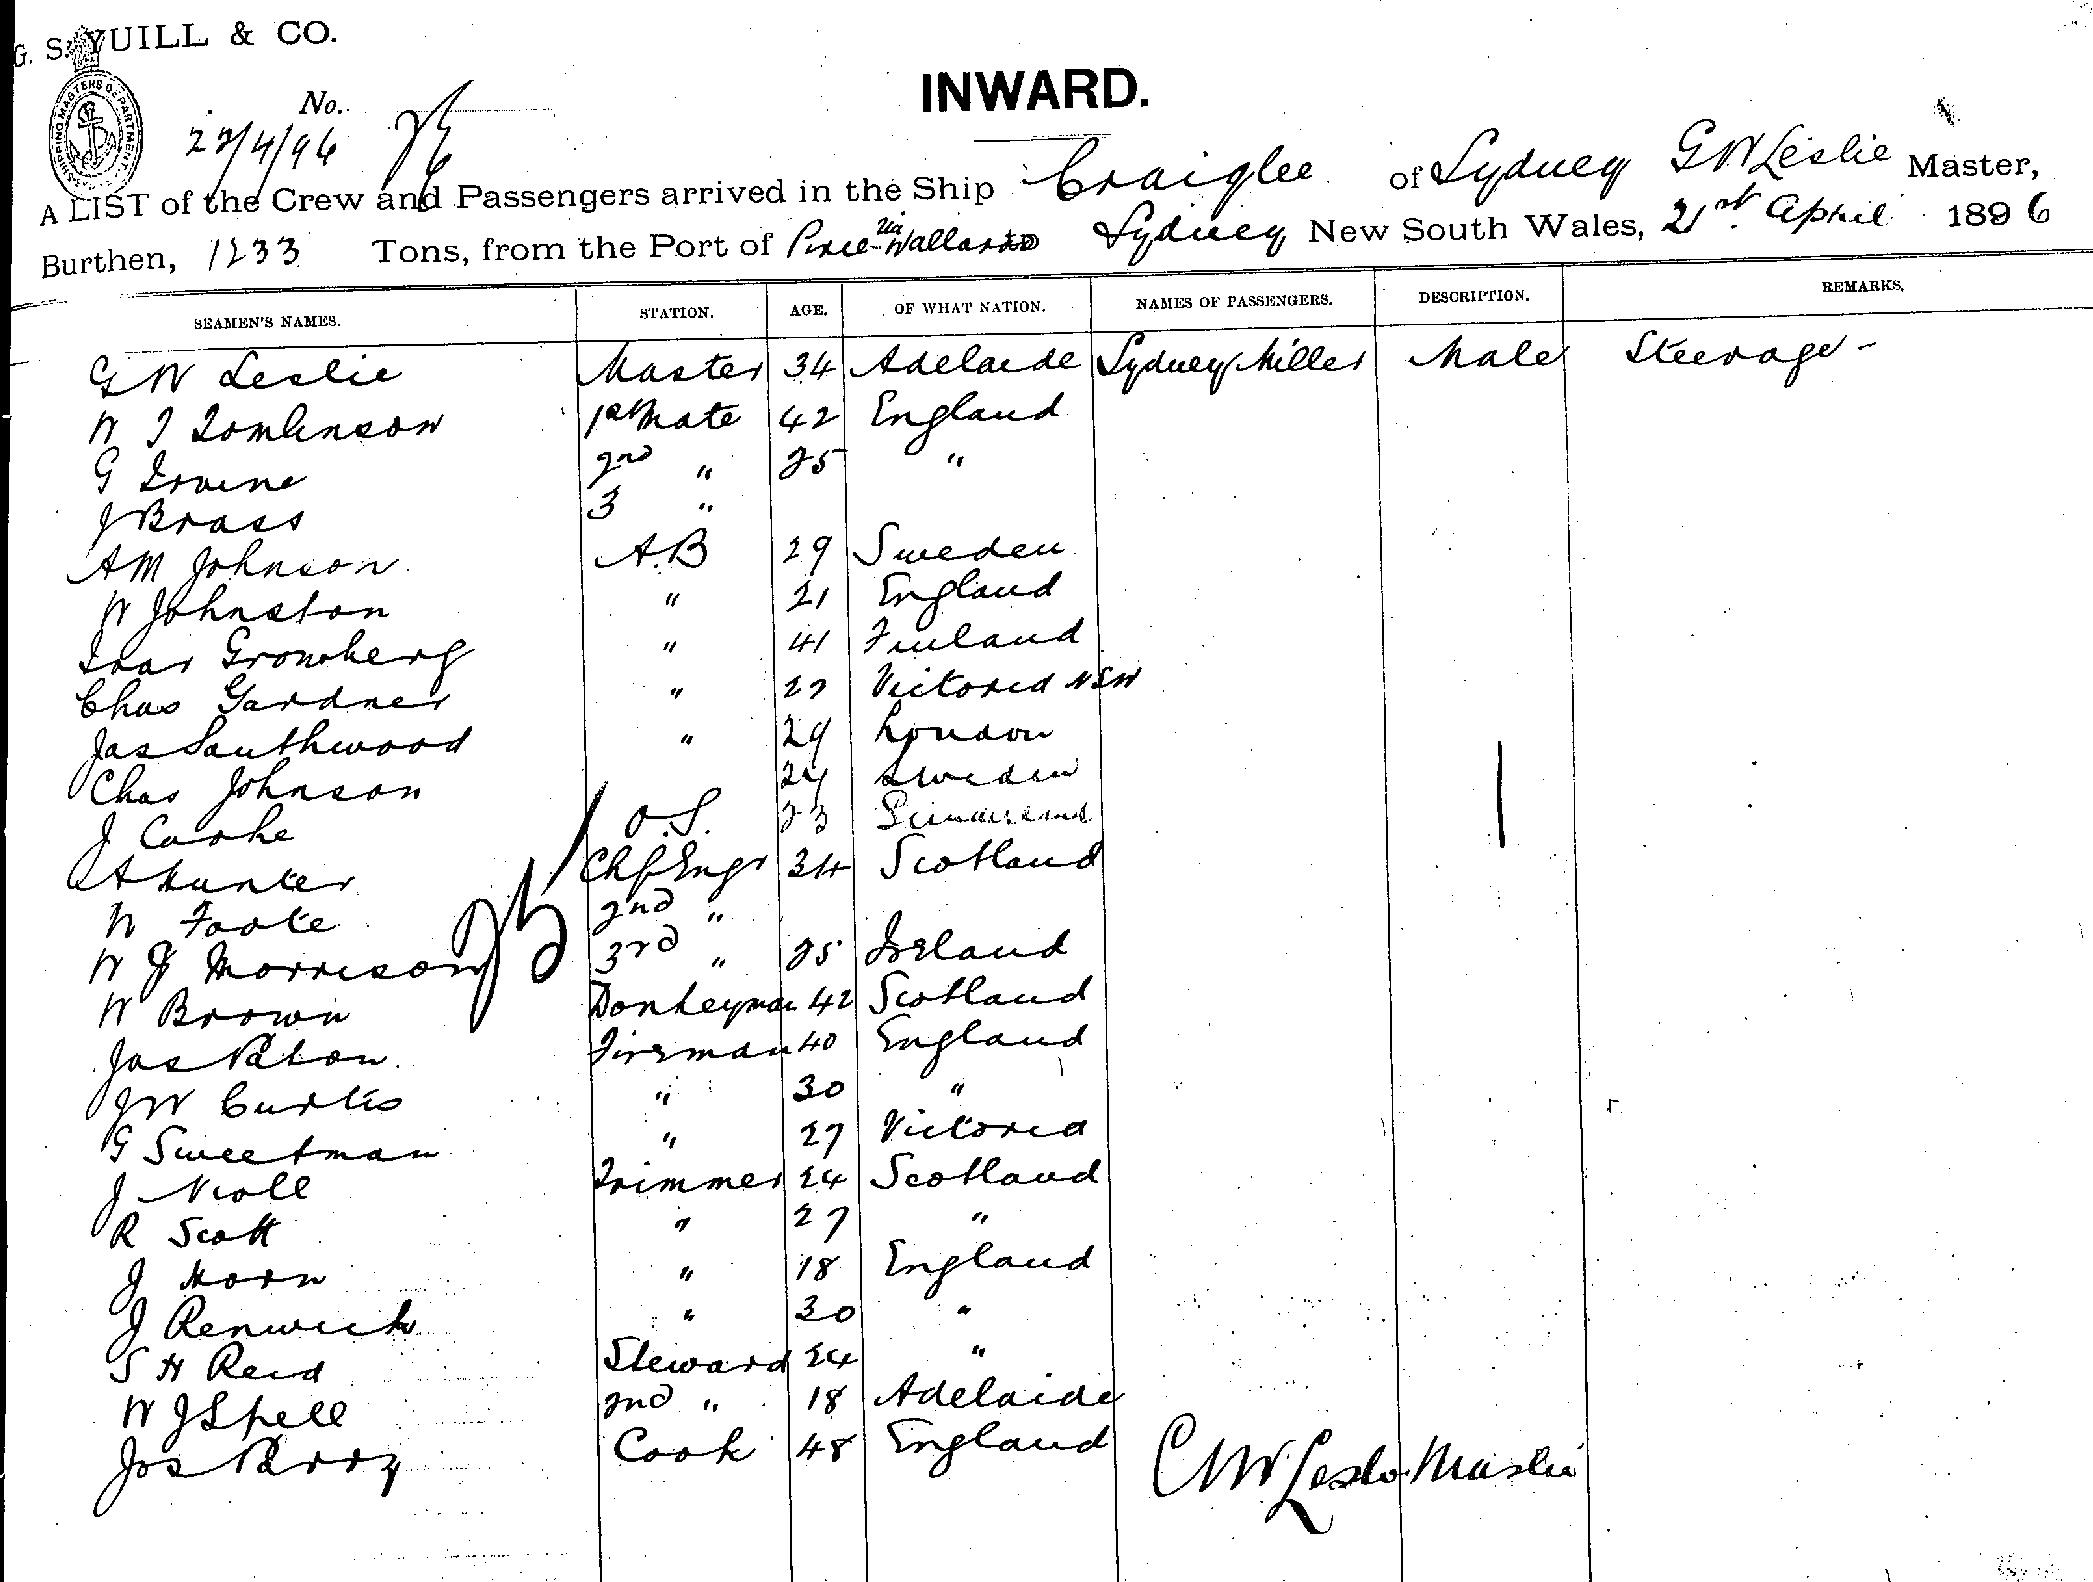 G. S. YUILL & CO.
INWARD.
No.
SHIPPING MASTERS DEPARTMENT
22/4/96
A LIST of the Crew and Passengers arrived in the Ship Craiglee of Sydney G W Leslie Master,
Burthen, 1233 Tons, from the Port of Pirie via Wallaroo Sydney New South Wales, 21st April 1896
SEAMEN'S NAMES. STATION. AGE. OF WHAT NATION. NAMES OF PASSENGERS. DESCRIPTION. REMARKS.
G W Leslie Master 34 Adelaide Sydney Miller Male Steerage -
W J Tomlinson 1st Mate 42 England
G Irvine 2nd " 25 "
J Brass 3 "
A M Johnson A.B 29 Sweden
W Johnston " 21 England
Ivar Gronberg " 41 Finland
Chas Gardner " 22 Victoria NSW
Jas Southwood " 29 London
Chas Johnson 24 Sweden
J Cooke O.S. 23 Sunderland
A Hunter Chf Engr 34 Scotland
W Foote 2nd "
W J Morrison 3rd " 25 Ireland
W Brown Donkeyman 42 Scotland
Jas Paton Fireman 40 England
J W Curtis " 30 "
G Sweetman " 27 Victoria
J Nicoll Trimmer 24 Scotland
R Scott " 27 "
J Horn " 18 England
J Renwick " 30 "
S H Reid Steward 24 "
W J Spell 2nd " 18 Adelaide
Jos Perry Cook 48 England
GW Leslie Master